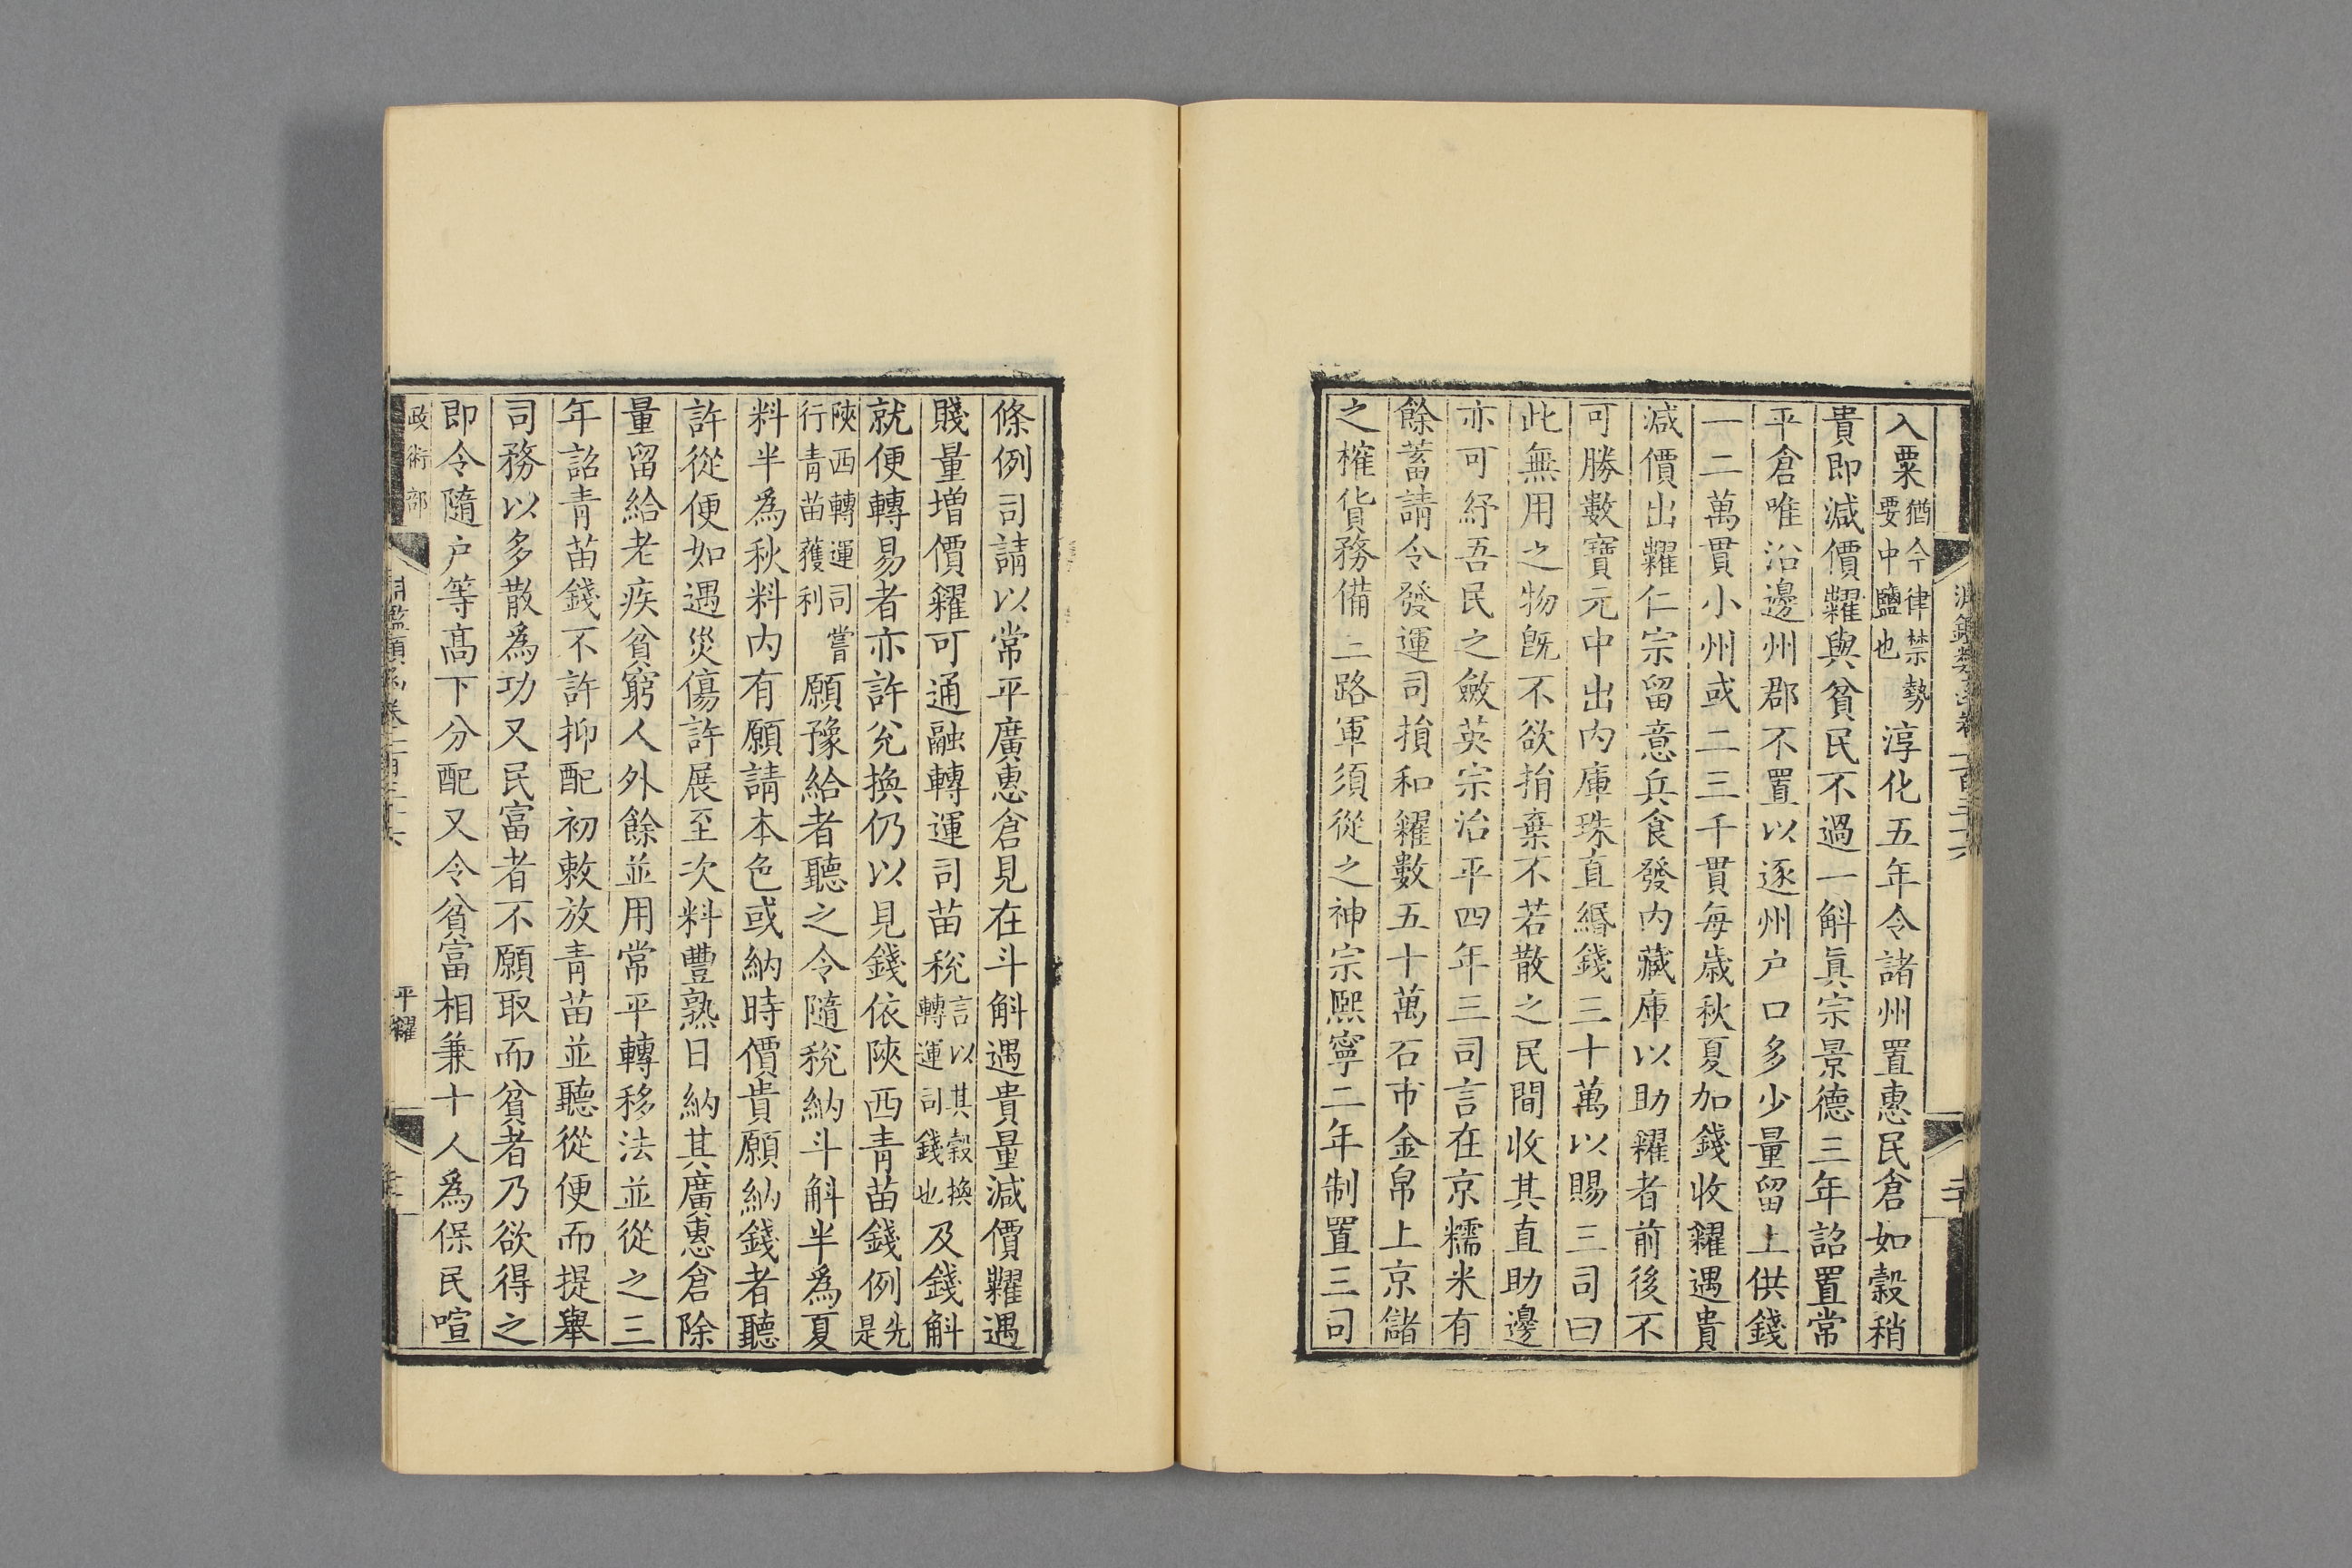 入粟猶今律禁勢要中鹽也淳化五年令諸州置惠民倉如穀稍
貴即減價糶與貧民不過一斛眞宗景德三年詔置常
平倉唯沿邊州郡不置以逐州户口多少量留上供錢
一二萬貫小州或二三千貫每歲秋夏加錢收糴遇貴
減價出糶仁宗留意兵食發内藏庫以助糴者前後不
可勝數寶元中出内庫珠直緡錢三十萬以賜三司曰
此無用之物旣不欲捐棄不若散之民間收其直助邊
亦可紓吾民之斂英宗治平四年三司言在京糯米有
餘蓄請令發運司損和糴數五十萬石市金帛上京儲
之榷貨務備三路軍須從之神宗熙寧二年制置三司
條例司請以常平廣惠倉見在斗斛遇貴量減價糶遇
賤量增價糴可通融轉運司苗稅言以其穀換轉運司錢也及錢斛
就便轉易者亦許兊換仍以見錢依陝西青苗錢例先是
陝西轉運司嘗行青苗獲利願豫給者聽之令隨稅納斗斛半爲夏
料半爲秋料内有願請本色或納時價貴願納錢者聽
許從便如遇災傷許展至次料豐熟日納其廣惠倉除
量留給老疾貧窮人外餘並用常平轉移法並從之三
年詔青苗錢不許抑配初敕放青苗並聽從便而提舉
司務以多散爲功又民富者不願取而貧者乃欲得之
即令隨户等高下分配又令貧富相兼十人爲保民喧
政術部
平糴